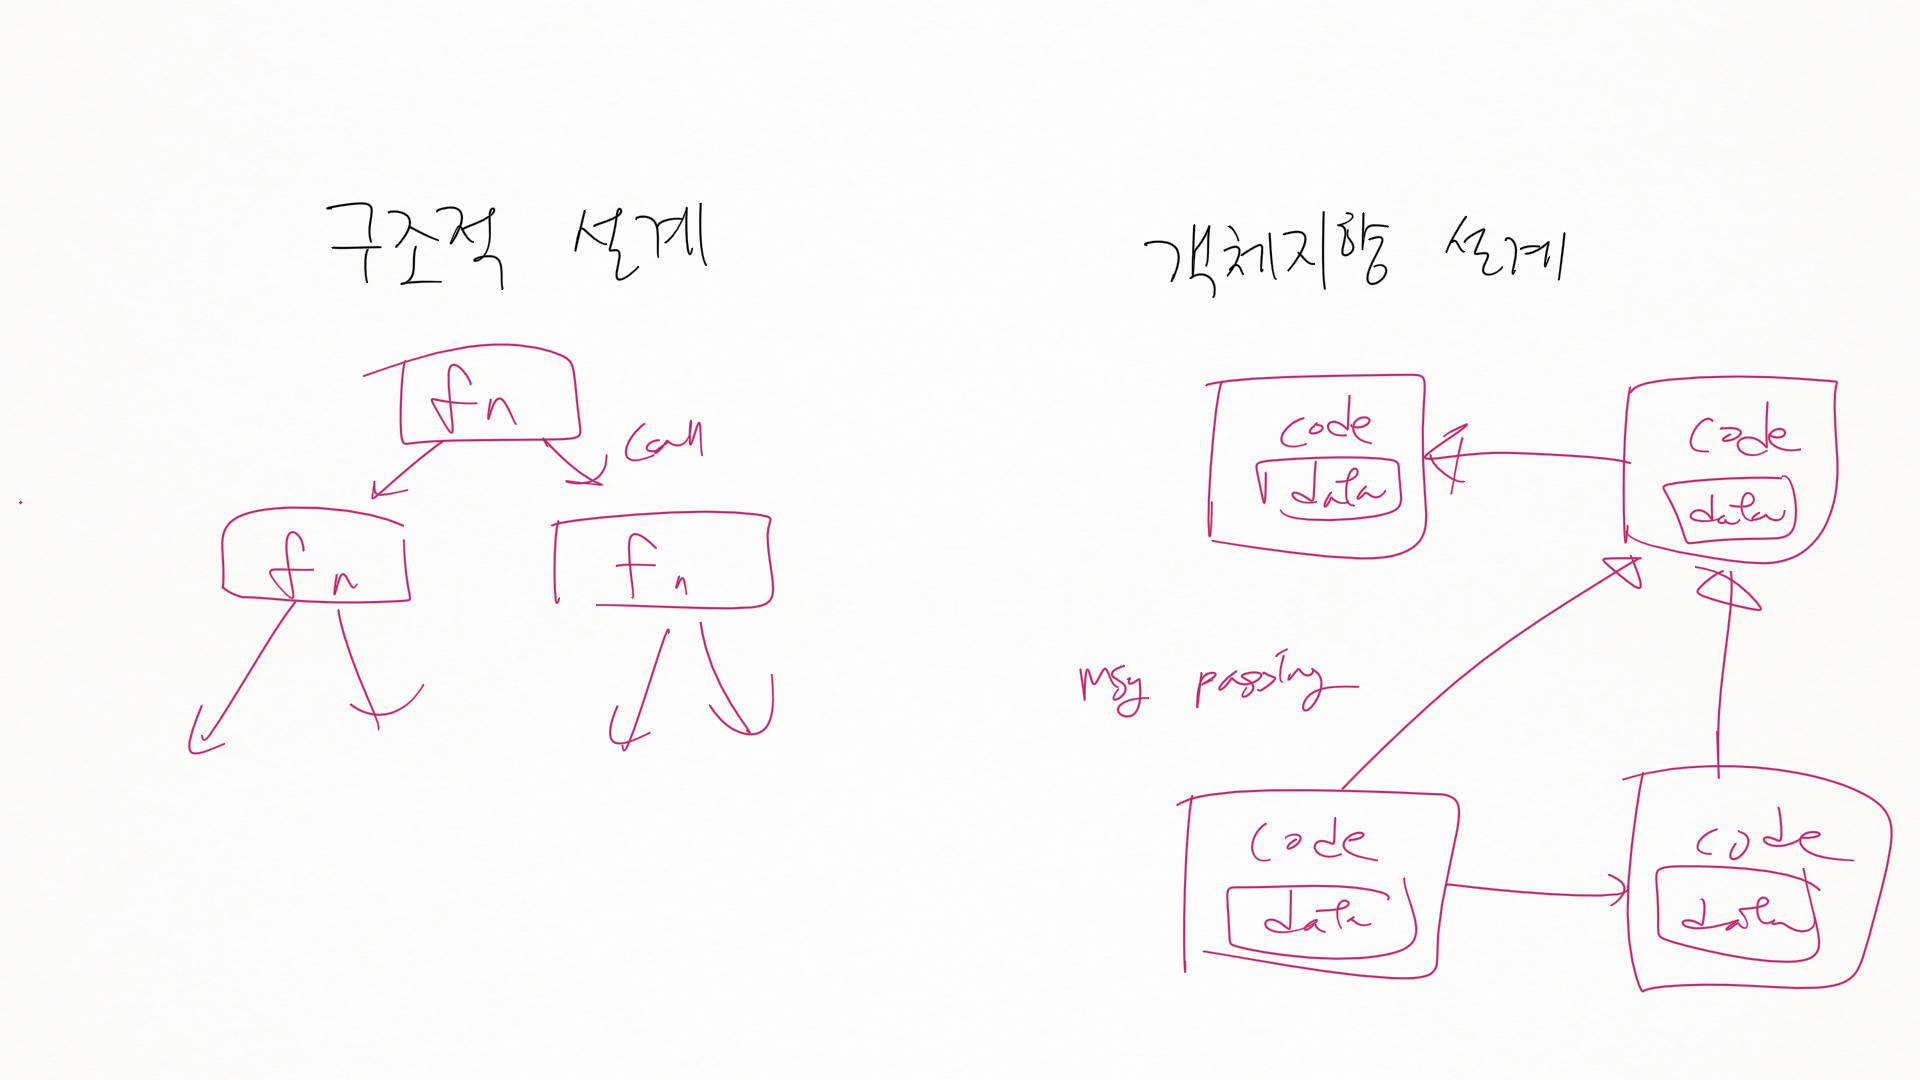 구조적 설계
fn
call
fn
fn
객체지향 설계
code
data
code
data
msg passing
code
data
code
data